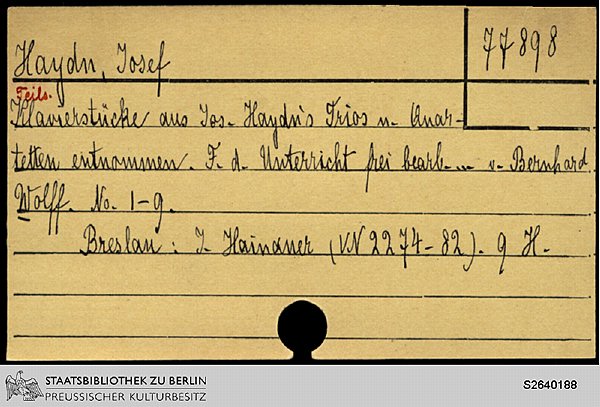 Haydn, Josef
77898
Teils.
Klavierstücke aus Jos. Haydn's Trios u. Quar-
tetten entnommen. F. d. Unterricht frei bearb. ... v. Bernhard
Wolff. No. 1-9.
Breslau: J. Hainauer (VN 2274-82). 9 H.
STAATSBIBLIOTHEK ZU BERLIN
PREUSSISCHER KULTURBESITZ
S2640188